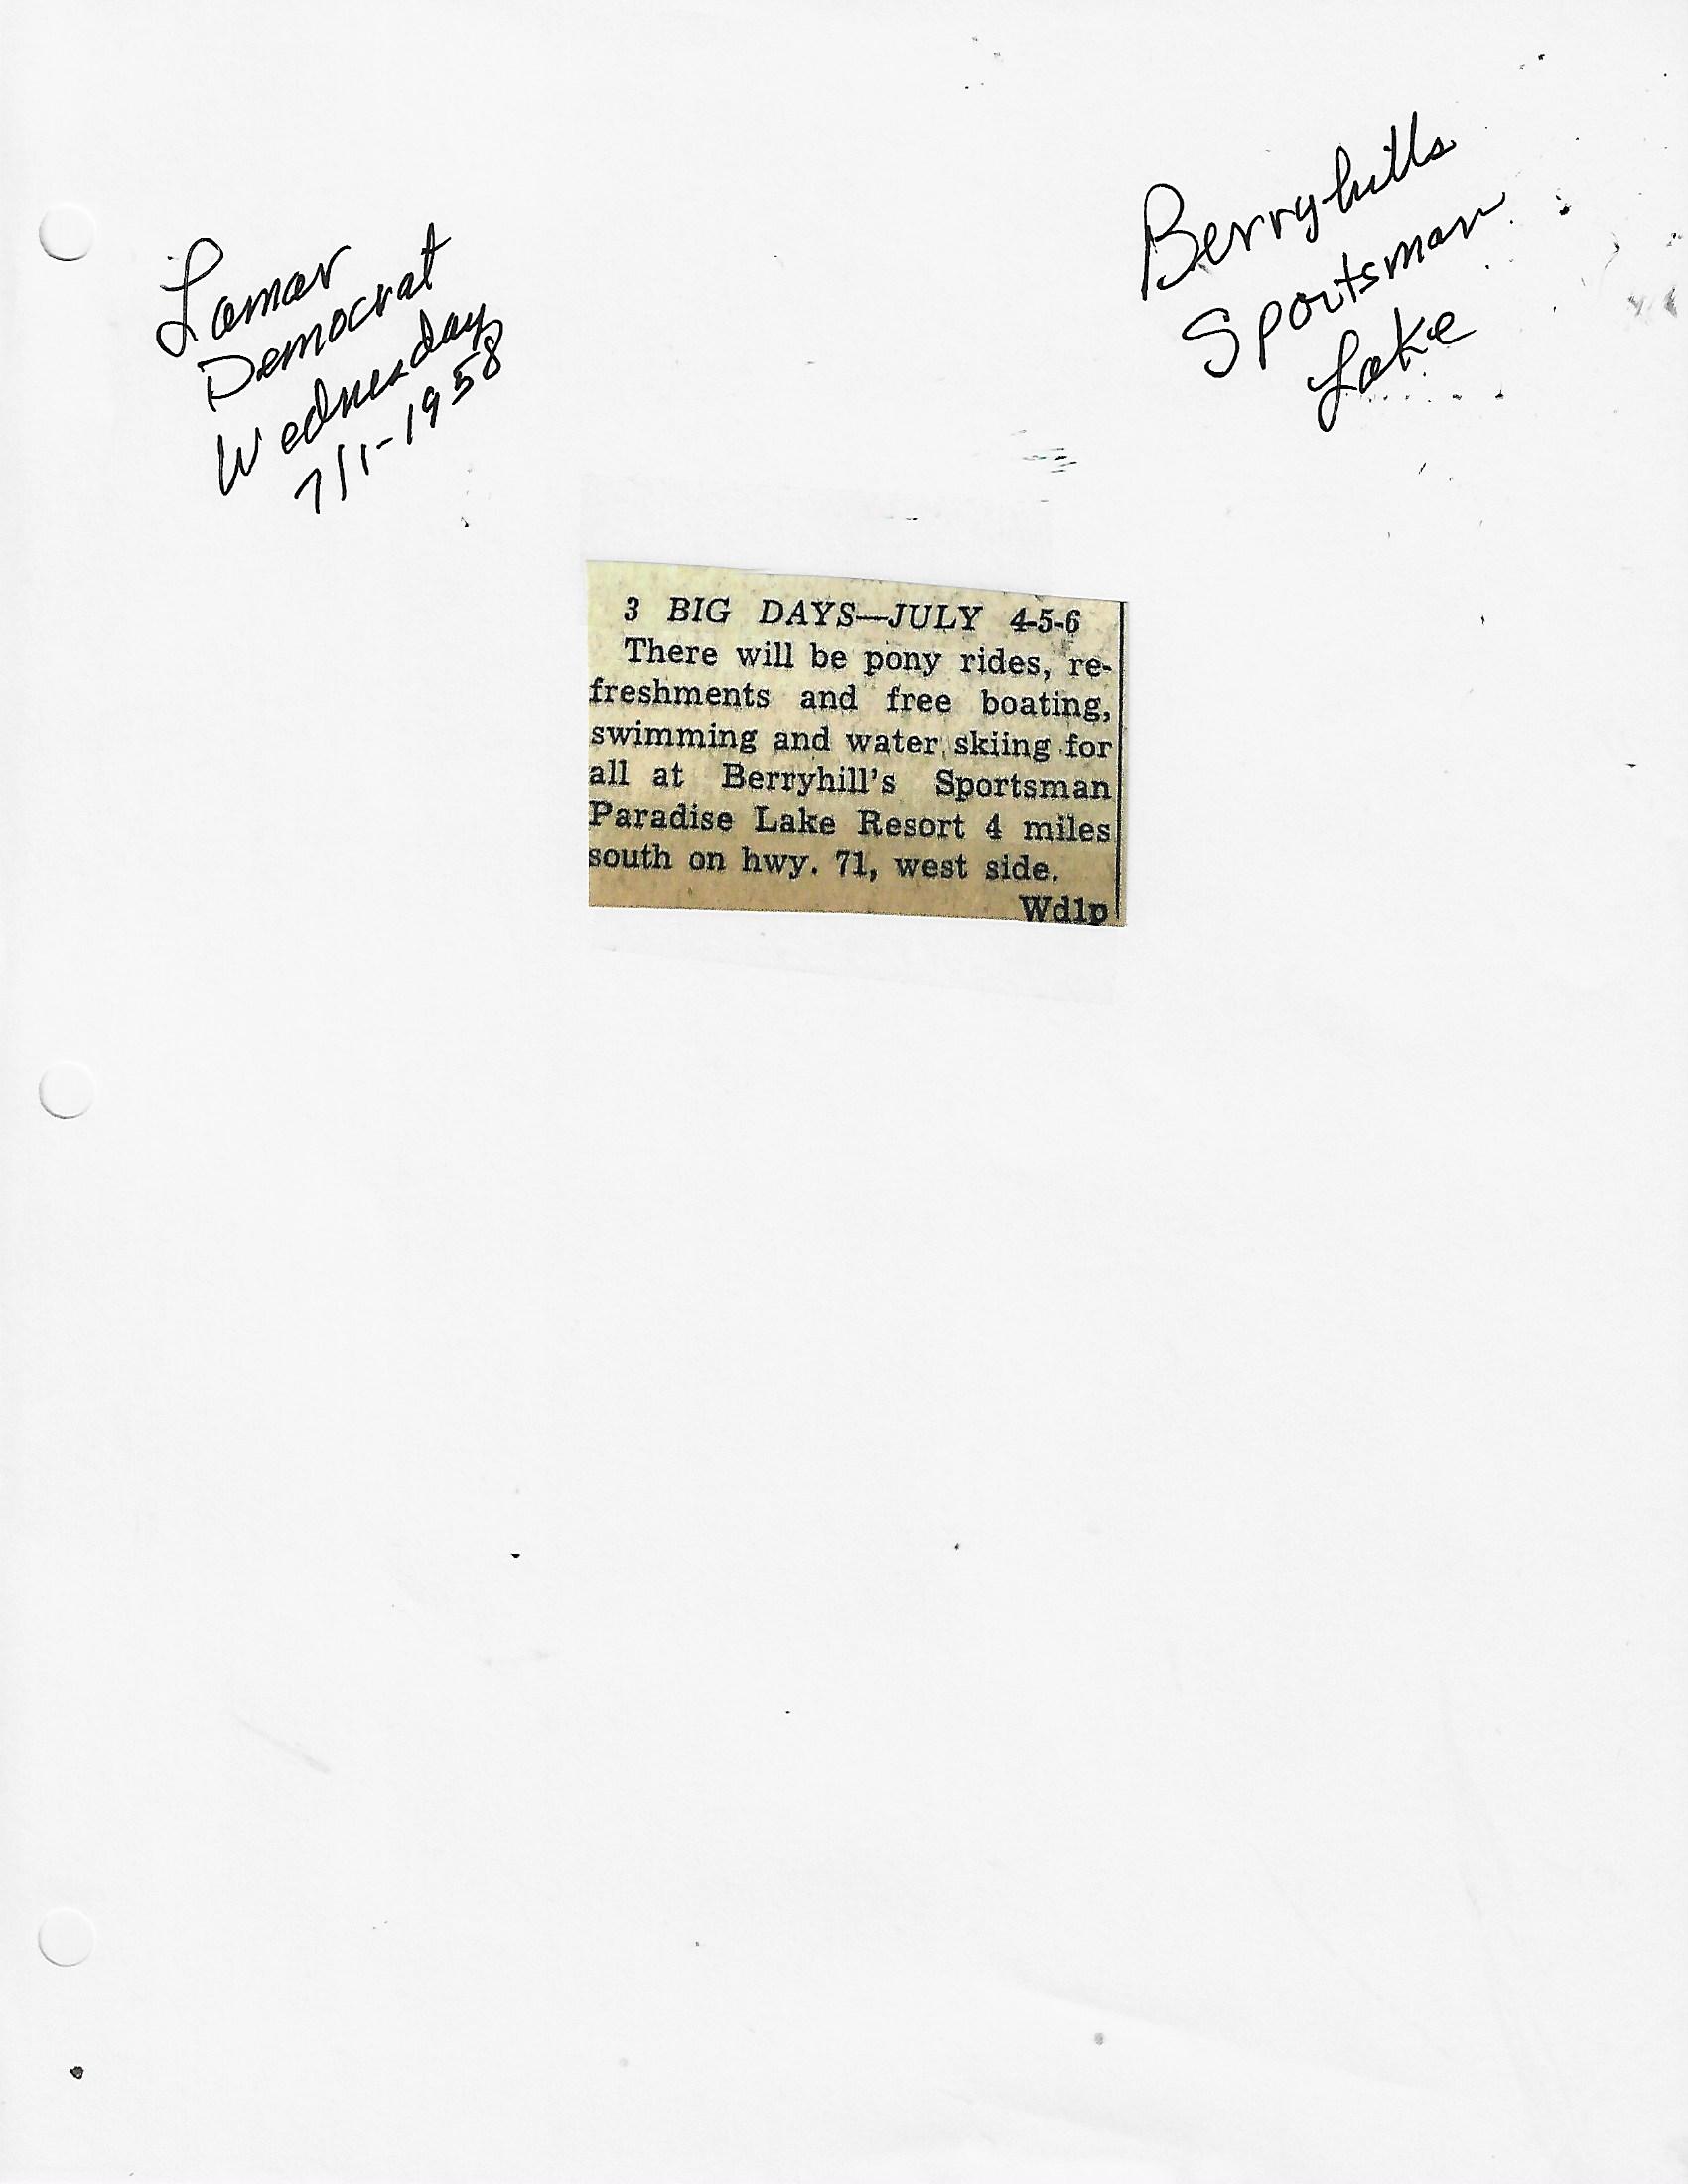 Lamar
Democrat
Wednesday
7/1-1958
Berryhills
Sportsman
Lake
3 BIG DAYS—JULY 4-5-6
There will be pony rides, re-
freshments and free boating,
swimming and water skiing for
all at Berryhill's Sportsman
Paradise Lake Resort 4 miles
south on hwy. 71, west side.
Wd1p